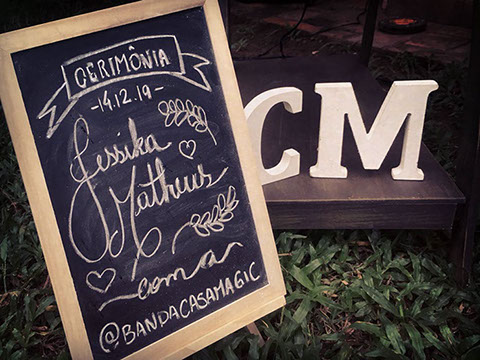 CERIMÔNIA
-14.12.19-
Jessika
Matheus
com a
@BANDACASAMAGIC
CM